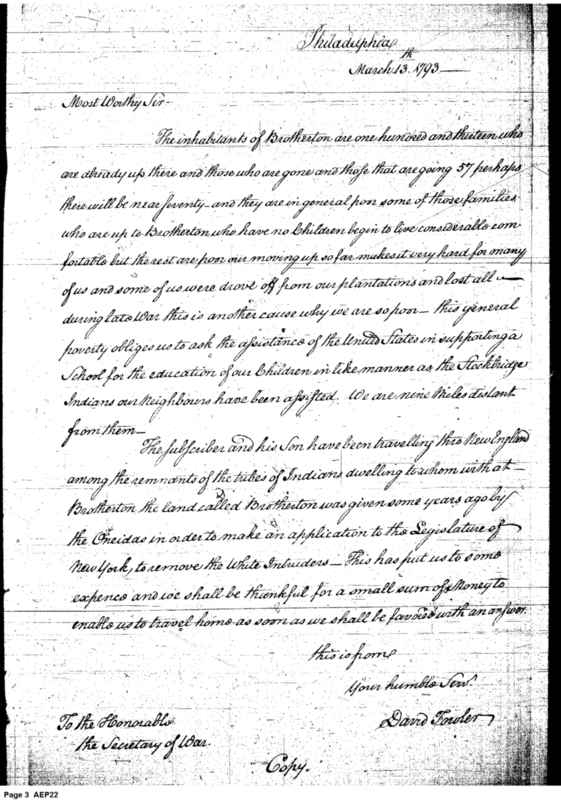 Philadelphia
March 13th 1793—
Most Worthy Sir—
The inhabitants of Brotherton are one hundred and thirteen who
are already up there and those who are gone and those that are going 57 perhaps
there will be near seventy— and they are in general poor some of those families
who are up to Brotherton who have no Children begin to live considerable com-
fortable but the rest are poor our moving up so far makes it very hard for many
of us and some of us were drove off from our plantations and lost all—
during late War this is another cause why we are so poor— this general
poverty obliges us to ask the assistance of the United States in supporting a
School for the education of our Children in like manner as the Stockbridge
Indians our Neighbours have been assisted. We are nine Miles distant
from them—
The subscriber and his Son have been travelling thro New England
among the remnants of the tribes of Indians dwelling to whom with at—
Brotherton the land called Brotherton was given some years ago by
the Oneidas in order to make an application to the Legislature of
New York, to remove the White Intruders— This has put us to some
expence and we shall be thankful for a small sum of Money to
enable us to travel home as soon as we shall be favored with an answer.
this is from
Your humble Serv.t
David Fowler
To the Honorable
the Secretary of War.
Copy.
Page 3 AEP22